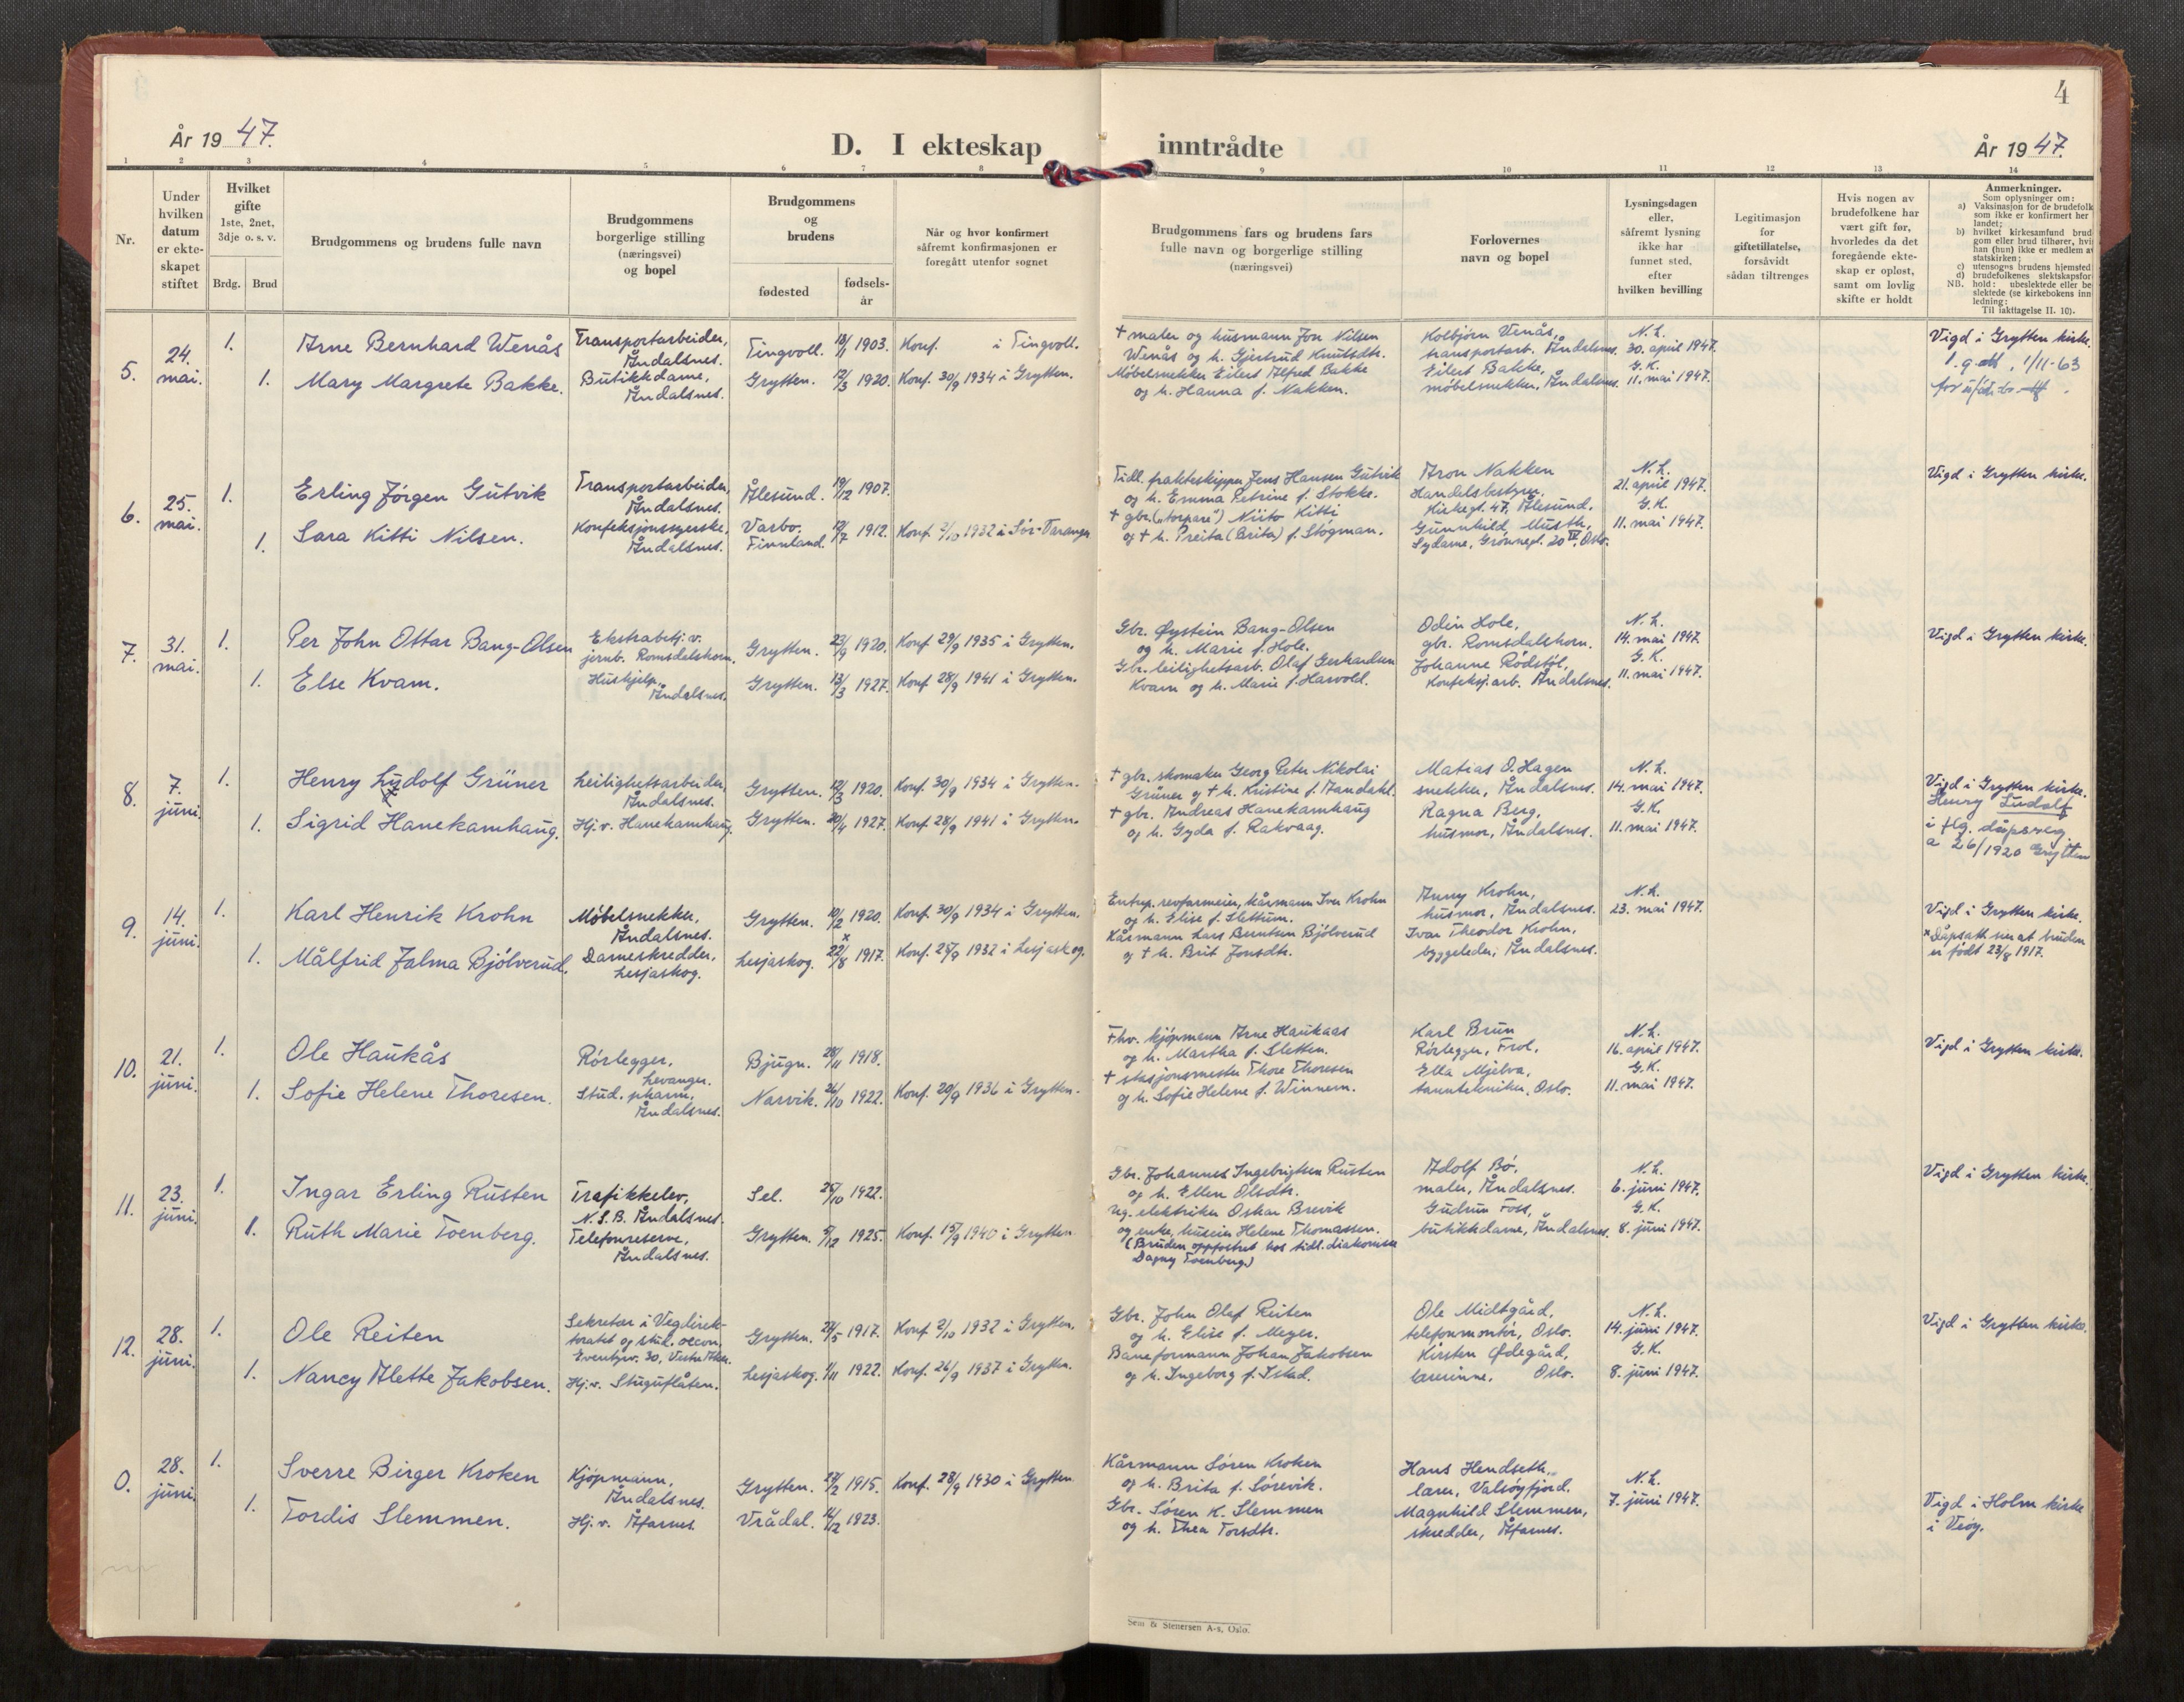 4
År 1947.
D. I ekteskap inntrådte
År 1947.
1 2 3 4 5 6 7 8 9 10 11 12 13 14
Nr.
Under hvilken datum er ekte-skapet stiftet
Hvilket gifte 1ste, 2net, 3dje o. s. v.
Brdg. Brud
Brudgommens og brudens fulle navn
Brudgommens borgerlige stilling (næringsvei) og bopel
Brudgommens og brudens
fødested
fødsels-år
Når og hvor konfirmert såfremt konfirmasjonen er foregått utenfor sognet
Brudgommens fars og brudens fars fulle navn og borgerlige stilling (næringsvei)
Forlovernes navn og bopel
Lysningsdagen eller, såfremt lysning ikke har funnet sted, efter hvilken bevilling
Legitimasjon for giftetillatelse, forsåvidt sådan tiltrenges
Hvis nogen av brudefolkene har vært gift før, hvorledes da det foregående ekte-skap er opløst, samt om lovlig skifte er holdt
Anmerkninger.
Som oplysninger om:
a) Vaksinasjon for de brudefolk som ikke er konfirmert her landet;
b) hvilket kirkesamfund brud-gom eller brud tilhører, hvis han (hun) ikke er medlem av statskirken;
c) utensogns brudens hjemsted
d) brudefolkenes slektskapsfor-hold: ubeslektede eller be-slektede (se kirkebokens inn-ledning:
NB.
Til iakttagelse II. 10).
5. 24. mai. 1. Arne Bernhard Wenås Transportarbeider, Åndalsnes. Tingvoll. 18/11 1903. Konf. i Tingvoll.
1. Mary Margrete Bakke. Butikkdame, Åndalsnes. Grytten. 12/3 1920. Konf. 30/9 1934 i Grytten.
† maler og husmann Jon Nilsen
Wenås og h. Gjertrud Knutsdtr.
Møbelsnekker Eilert Alfred Bakke
og h. Hanna f. Nakken.
Kolbjørn Venås,
transportarb. Åndalsnes.
Eilert Bakke,
møbelsnekker, Åndalsnes.
N. L.
30. april 1947.
G. K.
11. mai 1947.
Vigd i Grytten kirke.
1/11-63
6. 25. mai. 1. Erling Jørgen Gutvik Transportarbeider, Åndalsnes. Ålesund. 19/12 1907.
1. Sara Kitti Nilsen. Konfeksjonssyerske, Åndalsnes. Varbo. Finnland. 12/7 1912. Konf. 2/10 1932 i Sør-Varanger
Tidl. frakteskipper Jens Hansen Gutvik
og h. Emma Petrine f. Stokke.
† gbr. („torpare") Niito Kitti
og † h. Preita (Brita) f. Stogman.
Aron Nakken
Handelsbestyrer,
Kirkegt. 47, Ålesund.
Gunnhild Musth,
Sydame, Grønnegt. 20 IV, Oslo.
N. L.
21. april 1947.
G. K.
11. mai 1947.
Vigd i Grytten kirke.
7. 31. mai. 1. Per John Ottar Bang-Olsen Ekstrabetj. v. jernb. Romsdalshorn. Grytten. 23/9 1920. Konf. 29/9 1935 i Grytten.
1. Else Kvam. Hushjelp, Åndalsnes. Grytten. 13/3 1927. Konf. 28/9 1941 i Grytten.
Gbr. Øystein Bang-Olsen
og h. Marie f. Hole.
Gbr. leilighetsarb. Olaf Gerhardsen
Kvam og h. Marie f. Harvold.
Odin Hole,
gbr. Romsdalshorn.
Johanne Rødstøl,
Konfeksj.arb. Åndalsnes.
N. L.
14. mai 1947.
G. K.
11. mai 1947.
Vigd i Grytten kirke.
8. 7. juni. 1. Henry Ludolf Grüner Leilighetsarbeider, Åndalsnes. Grytten. 12/3 1920. Konf. 30/9 1934 i Grytten.
1. Sigrid Hanekamhaug. Hj. v. Hanekamhaug. Grytten. 20/4 1927. Konf. 28/9 1941 i Grytten.
† gbr. skomaker Georg Peter Nikolai
Grüner og † h. Kristine f. Aandahl.
† gbr. Andreas Hanekamhaug
og h. Gyda f. Rakvaag.
Matias O. Hagen
snekker, Åndalsnes.
Ragna Berg,
husmor, Åndalsnes.
N. L.
14. mai 1947.
G. K.
11. mai 1947.
Vigd i Grytten kirke.
Henry Ludolf
i flg. dåpsreg.
a 26/1920 Grytten
9. 14. juni. 1. Karl Henrik Krohn Møbelsnekker, Åndalsnes. Grytten. 10/2 1920. Konf. 30/9 1934 i Grytten.
1. Målfrid Jalma Bjölverud. Dameskredder, Lesjaskog. Lesjaskog. 22/8 x 1917. Konf. 25/9 1932 i Lesjaskog.
Entrep. revfarmeier, kårmann Iver Krohn
og h. Elise f. Slettum.
Kårmann Lars Berntsen Bjölverud
og † h. Brit Jonsdtr.
Anny Krohn,
husmor, Åndalsnes.
Ivar Theodor Krohn,
byggeleder, Åndalsnes.
N. L.
23. mai 1947.
Vigd i Grytten kirke.
x Dåpsatt. sier at bruden
er født 23/8 1917.
10. 21. juni. 1. Ole Haukås Rørlegger, Levanger. Bjugn. 28/11 1918.
1. Sofie Helene Thoresen. Stud. pharm., Åndalsnes. Narvik. 26/10 1922. Konf. 20/9 1936 i Grytten.
Fhv. kjøpmann Arne Haukaas
og h. Martha f. Sletten.
† stasjonsmester Thore Thoresen
og h. Sofie Helene f. Winnem.
Karl Brun
Rørlegger, Frol.
Ella Mjelva,
tanntekniker, Oslo.
N. L.
16. april 1947.
G. K.
11. mai 1947.
Vigd i Grytten kirke.
11. 23. juni. 1. Ingar Erling Rusten Trafikkelev, N. S. B. Åndalsnes. Sel. 25/10 1922.
1. Ruth Marie Toenberg. Telefonreserve, Åndalsnes. Grytten. 5/12 1925. Konf. 15/9 1940 i Grytten
Gbr. Johannes Ingebrigtsen Rusten
og h. Ellen Olsdtr.
Ug. elektriker Oskar Brevik
og enke, husein Helene Thomassen.
(Bruden oppfostret hos tidl. diakonisse
Dagny Toenberg)
Adolf Bø.
maler, Åndalsnes.
Gudrun Foss,
butikkdame, Åndalsnes.
N. L.
6. juni 1947.
G. K.
8. juni 1947.
Vigd i Grytten kirke.
12. 28. juni. 1. Ole Reiten Sekretær i Vegdirek-toratet og stud. oecon. Eventyrv. 30, Vestre Aker. Grytten. 24/5 1917. Konf. 2/10 1932 i Grytten.
1. Nancy Alette Jakobsen. Hj. v. Stuguflåten. Lesjaskog. 1/11 1922. Konf. 26/9 1937 i Grytten.
Gbr. John Olaf Reiten
og h. Elise f. Meyer.
Baneformann Johan Jakobsen
og h. Ingeborg f. Istad.
Ole Midtgård,
telefonmontør, Oslo.
Kirsten Ødegård,
lærerinne, Oslo.
N. L.
14. juni 1947.
G. K.
8. juni 1947.
Vigd i Grytten kirke.
0. 28. juni. 1. Sverre Birger Kroken Kjøpmann, Åndalsnes. Grytten. 27/2 1915. Konf. 28/9 1930 i Grytten
1. Tordis Slemmen. Hj. v. Åfarnes. Vrådal. 14/12 1923.
Kårmann Søren Kroken
og h. Brita f. Sørevik.
Gbr. Søren K. Slemmen
og h. Thea Torsdtr.
Hans Hendseth,
lærer, Valsøyfjord.
Magnhild Slemmen,
skredder, Åfarnes.
N. L.
7. juni 1947.
Vigd i Holm kirke
i Veøy.
Sem & Stenersen A-s, Oslo.